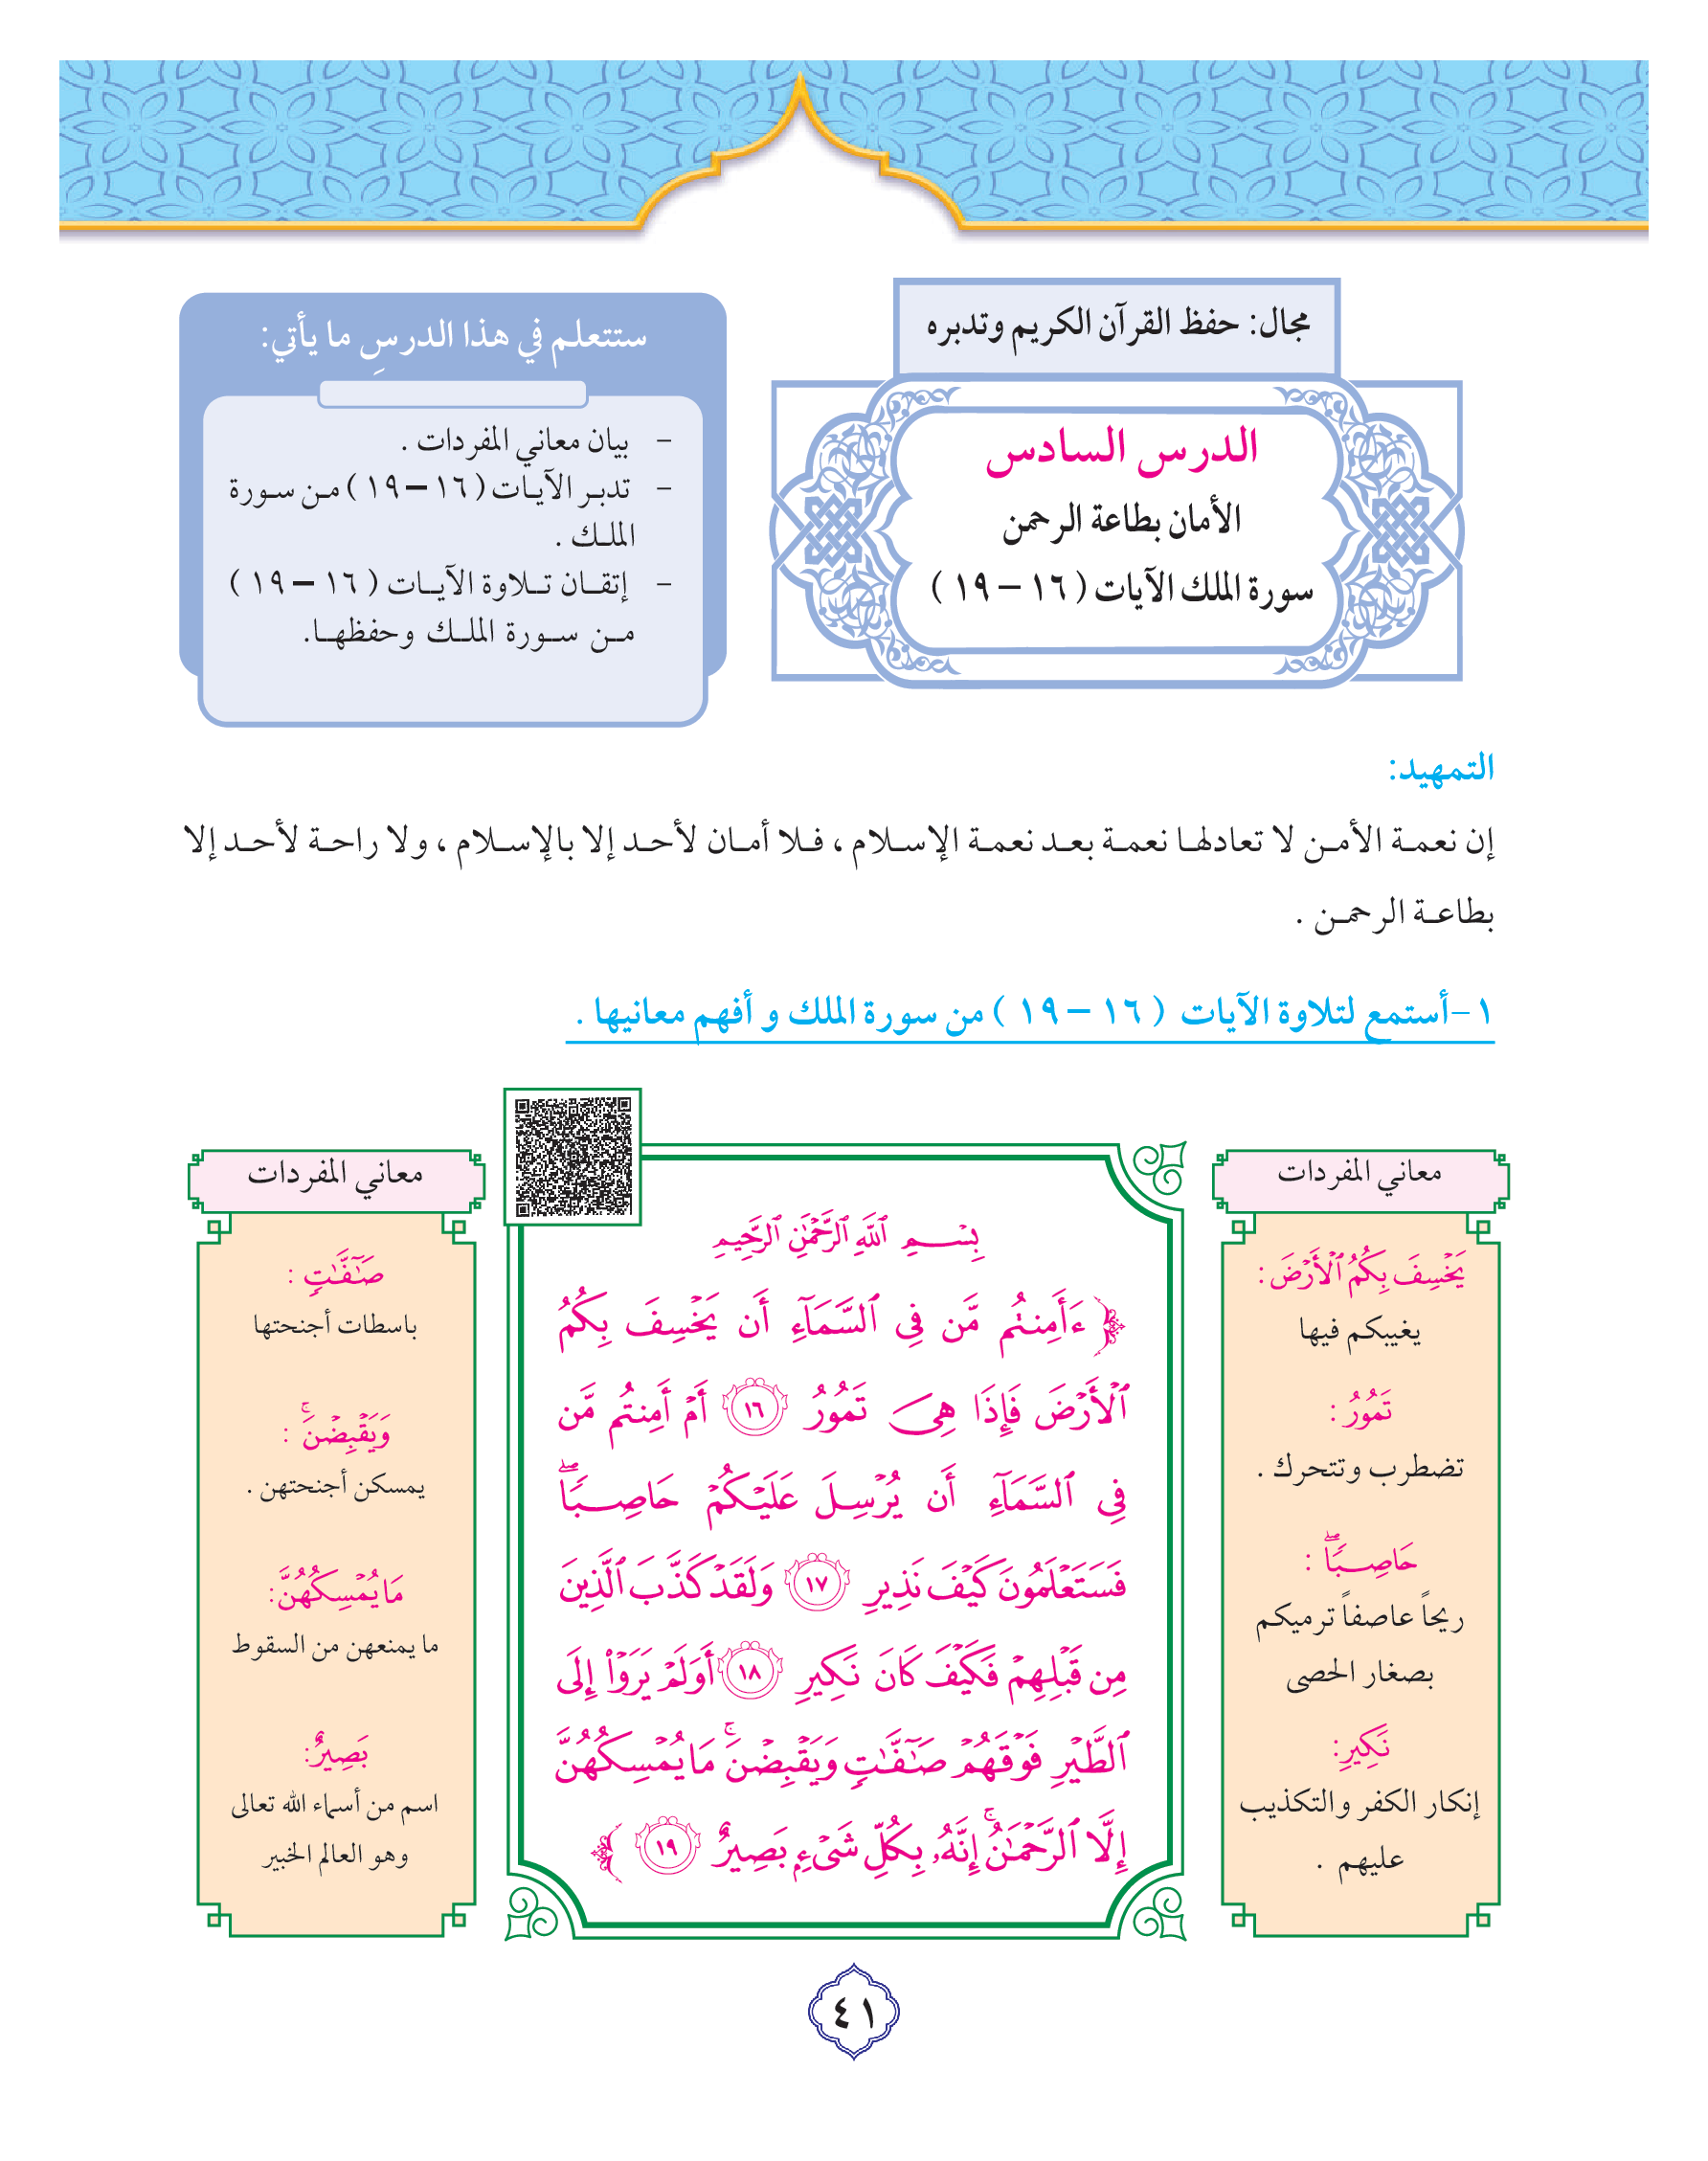 مجال: حفظ القرآن الكريم وتدبره
الدرس السادس
الأمان بطاعة الرحمن
سورة الملك الآيات ( ١٦ – ١٩ )
ستتعلم في هذا الدرسِ ما يأتي:
- بيان معاني المفردات .
- تدبر الآيات ( ١٦ – ١٩ ) من سورة
الملك .
- إتقان تلاوة الآيات ( ١٦ – ١٩ )
من سورة الملك وحفظها.
التمهيد:
إن نعمة الأمن لا تعادلها نعمة بعد نعمة الإسلام ، فلا أمان لأحد إلا بالإسلام ، ولا راحة لأحد إلا
بطاعة الرحمن .
١- أستمع لتلاوة الآيات ( ١٦ – ١٩ ) من سورة الملك و أفهم معانيها .
معاني المفردات
يَخۡسِفَ بِكُمُ ٱلۡأَرۡضَ :
يغيبكم فيها
تَمُورُ :
تضطرب وتتحرك .
حَاصِبٗاۖ :
ريحاً عاصفاً ترميكم
بصغار الحصى
نَكِيرِ:
إنكار الكفر والتكذيب
عليهم .
بِسۡمِ ٱللَّهِ ٱلرَّحۡمَٰنِ ٱلرَّحِيمِ
﴿ ءَأَمِنتُم مَّن فِي ٱلسَّمَآءِ أَن يَخۡسِفَ بِكُمُ
ٱلۡأَرۡضَ فَإِذَا هِيَ تَمُورُ ١٦ أَمۡ أَمِنتُم مَّن
فِي ٱلسَّمَآءِ أَن يُرۡسِلَ عَلَيۡكُمۡ حَاصِبٗاۖ
فَسَتَعۡلَمُونَ كَيۡفَ نَذِيرِ ١٧ وَلَقَدۡ كَذَّبَ ٱلَّذِينَ
مِن قَبۡلِهِمۡ فَكَيۡفَ كَانَ نَكِيرِ ١٨ أَوَلَمۡ يَرَوۡاْ إِلَى
ٱلطَّيۡرِ فَوۡقَهُمۡ صَٰٓفَّٰتٖ وَيَقۡبِضۡنَۚ مَا يُمۡسِكُهُنَّ
إِلَّا ٱلرَّحۡمَٰنُۚ إِنَّهُۥ بِكُلِّ شَيۡءِۭ بَصِيرٌ ١٩ ﴾
معاني المفردات
صَٰٓفَّٰتٖ :
باسطات أجنحتها
وَيَقۡبِضۡنَۚ :
يمسكن أجنحتهن .
مَا يُمۡسِكُهُنَّ:
ما يمنعهن من السقوط
بَصِيرٌ:
اسم من أسماء الله تعالى
وهو العالم الخبير
٤١